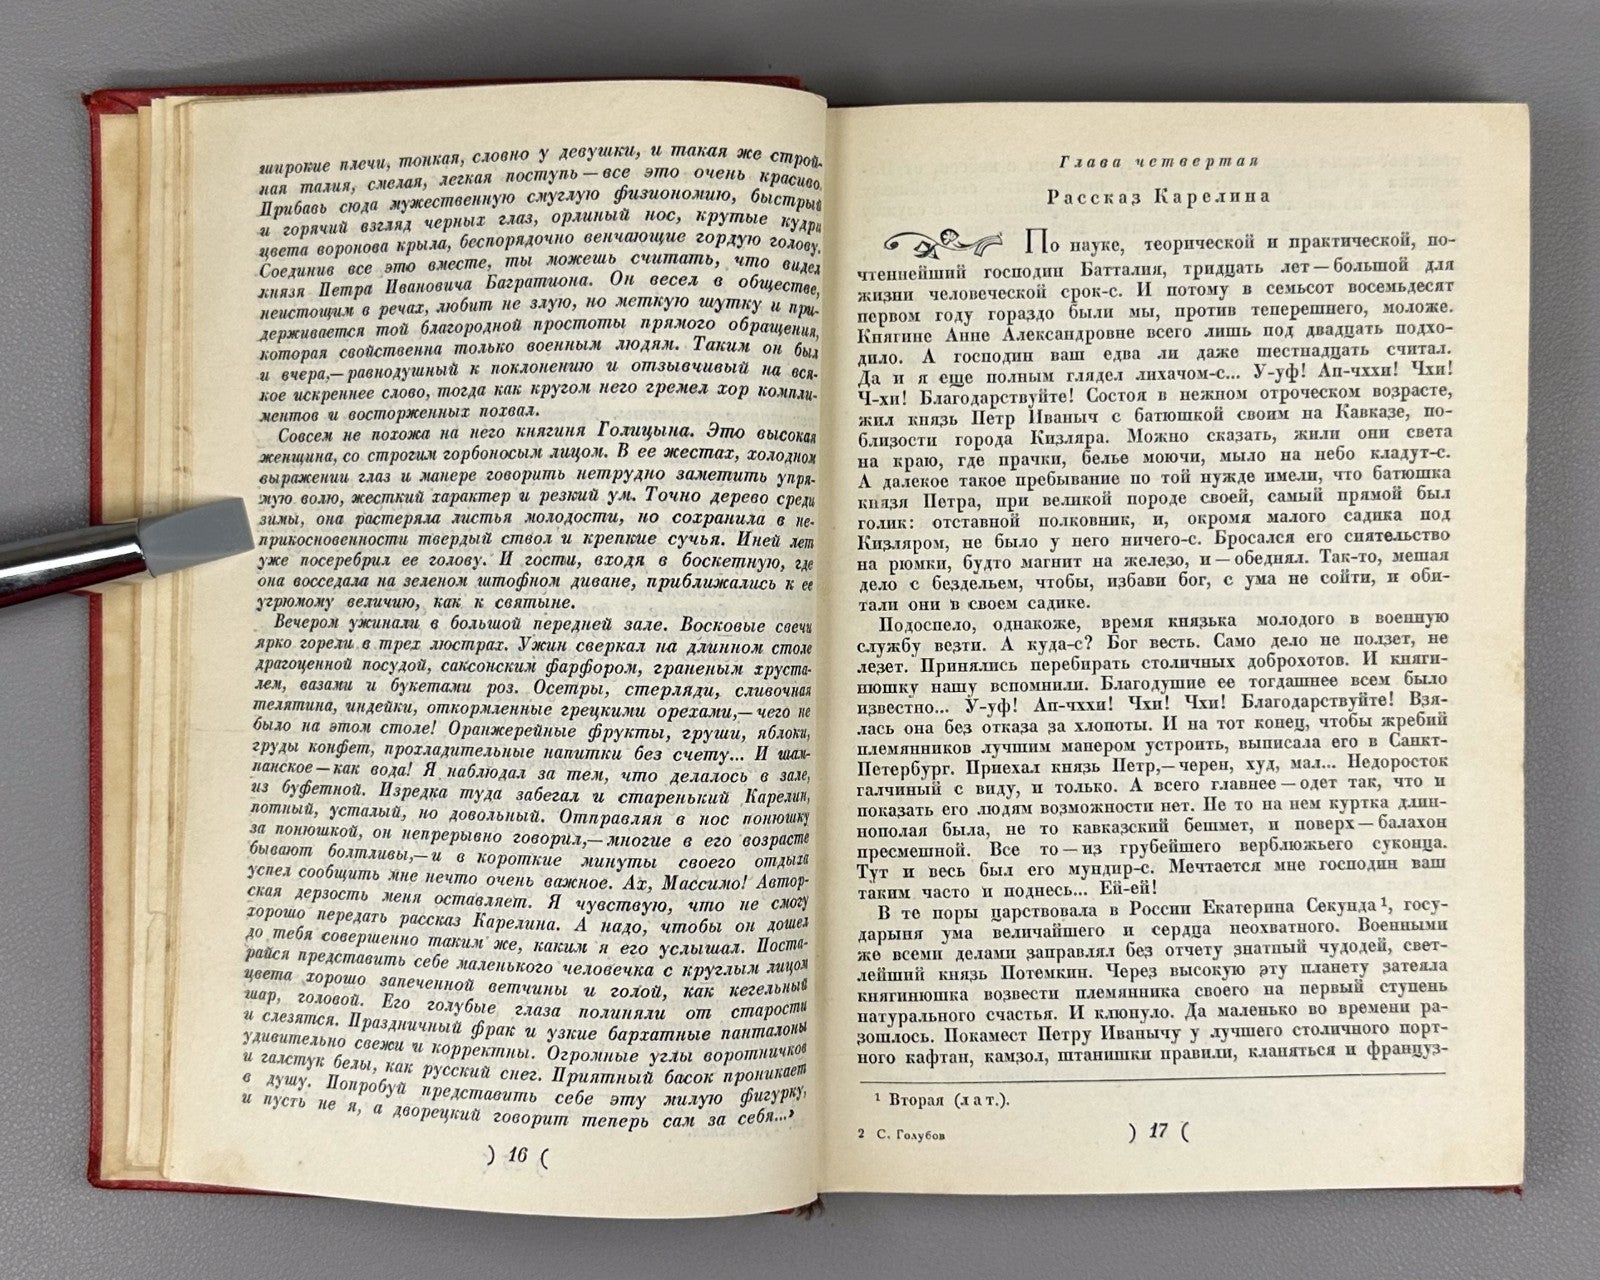 широкие плечи, тонкая, словно у девушки, и такая же строй-
ная талия, смелая, легкая поступь — все это очень красиво.
Прибавь сюда мужественную смуглую физиономию, быстрый
и горячий взгляд черных глаз, орлиный нос, крутые кудри
цвета воронова крыла, беспорядочно венчающие гордую голову.
Соединив все это вместе, ты можешь считать, что видел
князя Петра Ивановича Багратиона. Он весел в обществе,
неистощим в речах, любит не злую, но меткую шутку и при-
держивается той благородной простоты прямого обращения,
которая свойственна только военным людям. Таким он был
и вчера,— равнодушный к поклонению и отзывчивый на вся-
кое искреннее слово, тогда как кругом него гремел хор компли-
ментов и восторженных похвал.
Совсем не похожа на него княгиня Голицына. Это высокая
женщина, со строгим горбоносым лицом. В ее жестах, холодном
выражении глаз и манере говорить нетрудно заметить упря-
мую волю, жесткий характер и резкий ум. Точно дерево среди
зимы, она растеряла листья молодости, но сохранила в не-
прикосновенности твердый ствол и крепкие сучья. Иней лет
уже посеребрил ее голову. И гости, входя в боскетную, где
она восседала на зеленом штофном диване, приближались к ее
угрюмому величию, как к святыне.
Вечером ужинали в большой передней зале. Восковые свечи
ярко горели в трех люстрах. Ужин сверкал на длинном столе
драгоценной посудой, саксонским фарфором, граненым хруста-
лем, вазами и букетами роз. Осетры, стерляди, сливочная
телятина, индейки, откормленные грецкими орехами,— чего не
было на этом столе! Оранжерейные фрукты, груши, яблоки,
груды конфет, прохладительные напитки без счету... И шам-
панское — как вода! Я наблюдал за тем, что делалось в зале,
из буфетной. Изредка туда забегал и старенький Карелин,
потный, усталый, но довольный. Отправляя в нос понюшку
за понюшкой, он непрерывно говорил,— многие в его возрасте
бывают болтливы,— и в короткие минуты своего отдыха
успел сообщить мне нечто очень важное. Ах, Массимо! Автор-
ская дерзость меня оставляет. Я чувствую, что не смогу
хорошо передать рассказ Карелина. А надо, чтобы он дошел
до тебя совершенно таким же, каким я его услышал. Поста-
райся представить себе маленького человечка с круглым лицом
цвета хорошо запеченной ветчины и голой, как кегельный
шар, головой. Его голубые глаза полиняли от старости
и слезятся. Праздничный фрак и узкие бархатные панталоны
удивительно свежи и корректны. Огромные углы воротничков
и галстук белы, как русский снег. Приятный басок проникает
в душу. Попробуй представить себе эту милую фигурку,
и пусть не я, а дворецкий говорит теперь сам за себя...»
) 16 (
Глава четвертая
Рассказ Карелина
По науке, теорической и практической, по-
чтеннейший господин Батталия, тридцать лет — большой для
жизни человеческой срок-с. И потому в семьсот восемьдесят
первом году гораздо были мы, против теперешнего, моложе.
Княгине Анне Александровне всего лишь под двадцать подхо-
дило. А господин ваш едва ли даже шестнадцать считал.
Да и я еще полным глядел лихачом-с... У-уф! Ап-чххи! Чхи!
Ч-хи! Благодарствуйте! Состоя в нежном отроческом возрасте,
жил князь Петр Иваныч с батюшкой своим на Кавказе, по-
близости города Кизляра. Можно сказать, жили они света
на краю, где прачки, белье моючи, мыло на небо кладут-с.
А далекое такое пребывание по той нужде имели, что батюшка
князя Петра, при великой породе своей, самый прямой был
голик: отставной полковник, и, окромя малого садика под
Кизляром, не было у него ничего-с. Бросался его сиятельство
на рюмки, будто магнит на железо, и — обеднял. Так-то, мешая
дело с бездельем, чтобы, избави бог, с ума не сойти, и оби-
тали они в своем садике.
Подоспело, однакоже, время князька молодого в военную
службу везти. А куда-с? Бог весть. Само дело не ползет, не
лезет. Принялись перебирать столичных доброхотов. И княги-
нюшку нашу вспомнили. Благодушие ее тогдашнее всем было
известно... У-уф! Ап-чххи! Чхи! Чхи! Благодарствуйте! Взя-
лась она без отказа за хлопоты. И на тот конец, чтобы жребий
племянников лучшим манером устроить, выписала его в Санкт-
Петербург. Приехал князь Петр,— черен, худ, мал... Недоросток
галчиный с виду, и только. А всего главнее — одет так, что и
показать его людям возможности нет. Не то на нем куртка длин-
нополая была, не то кавказский бешмет, и поверх — балахон
пресмешной. Все то — из грубейшего верблюжьего суконца.
Тут и весь был его мундир-с. Мечтается мне господин ваш
таким часто и поднесь... Ей-ей!
В те поры царствовала в России Екатерина Секунда ¹, госу-
дарыня ума величайшего и сердца неохватного. Военными
же всеми делами заправлял без отчету знатный чудодей, свет-
лейший князь Потемкин. Через высокую эту планету затеяла
княгинюшка возвести племянника своего на первый ступень
натурального счастья. И клюнуло. Да маленько во времени ра-
зошлось. Покамест Петру Иванычу у лучшего столичного порт-
ного кафтан, камзол, штанишки правили, кланяться и француз-
¹ Вторая (лат.).
2 С. Голубов
) 17 (